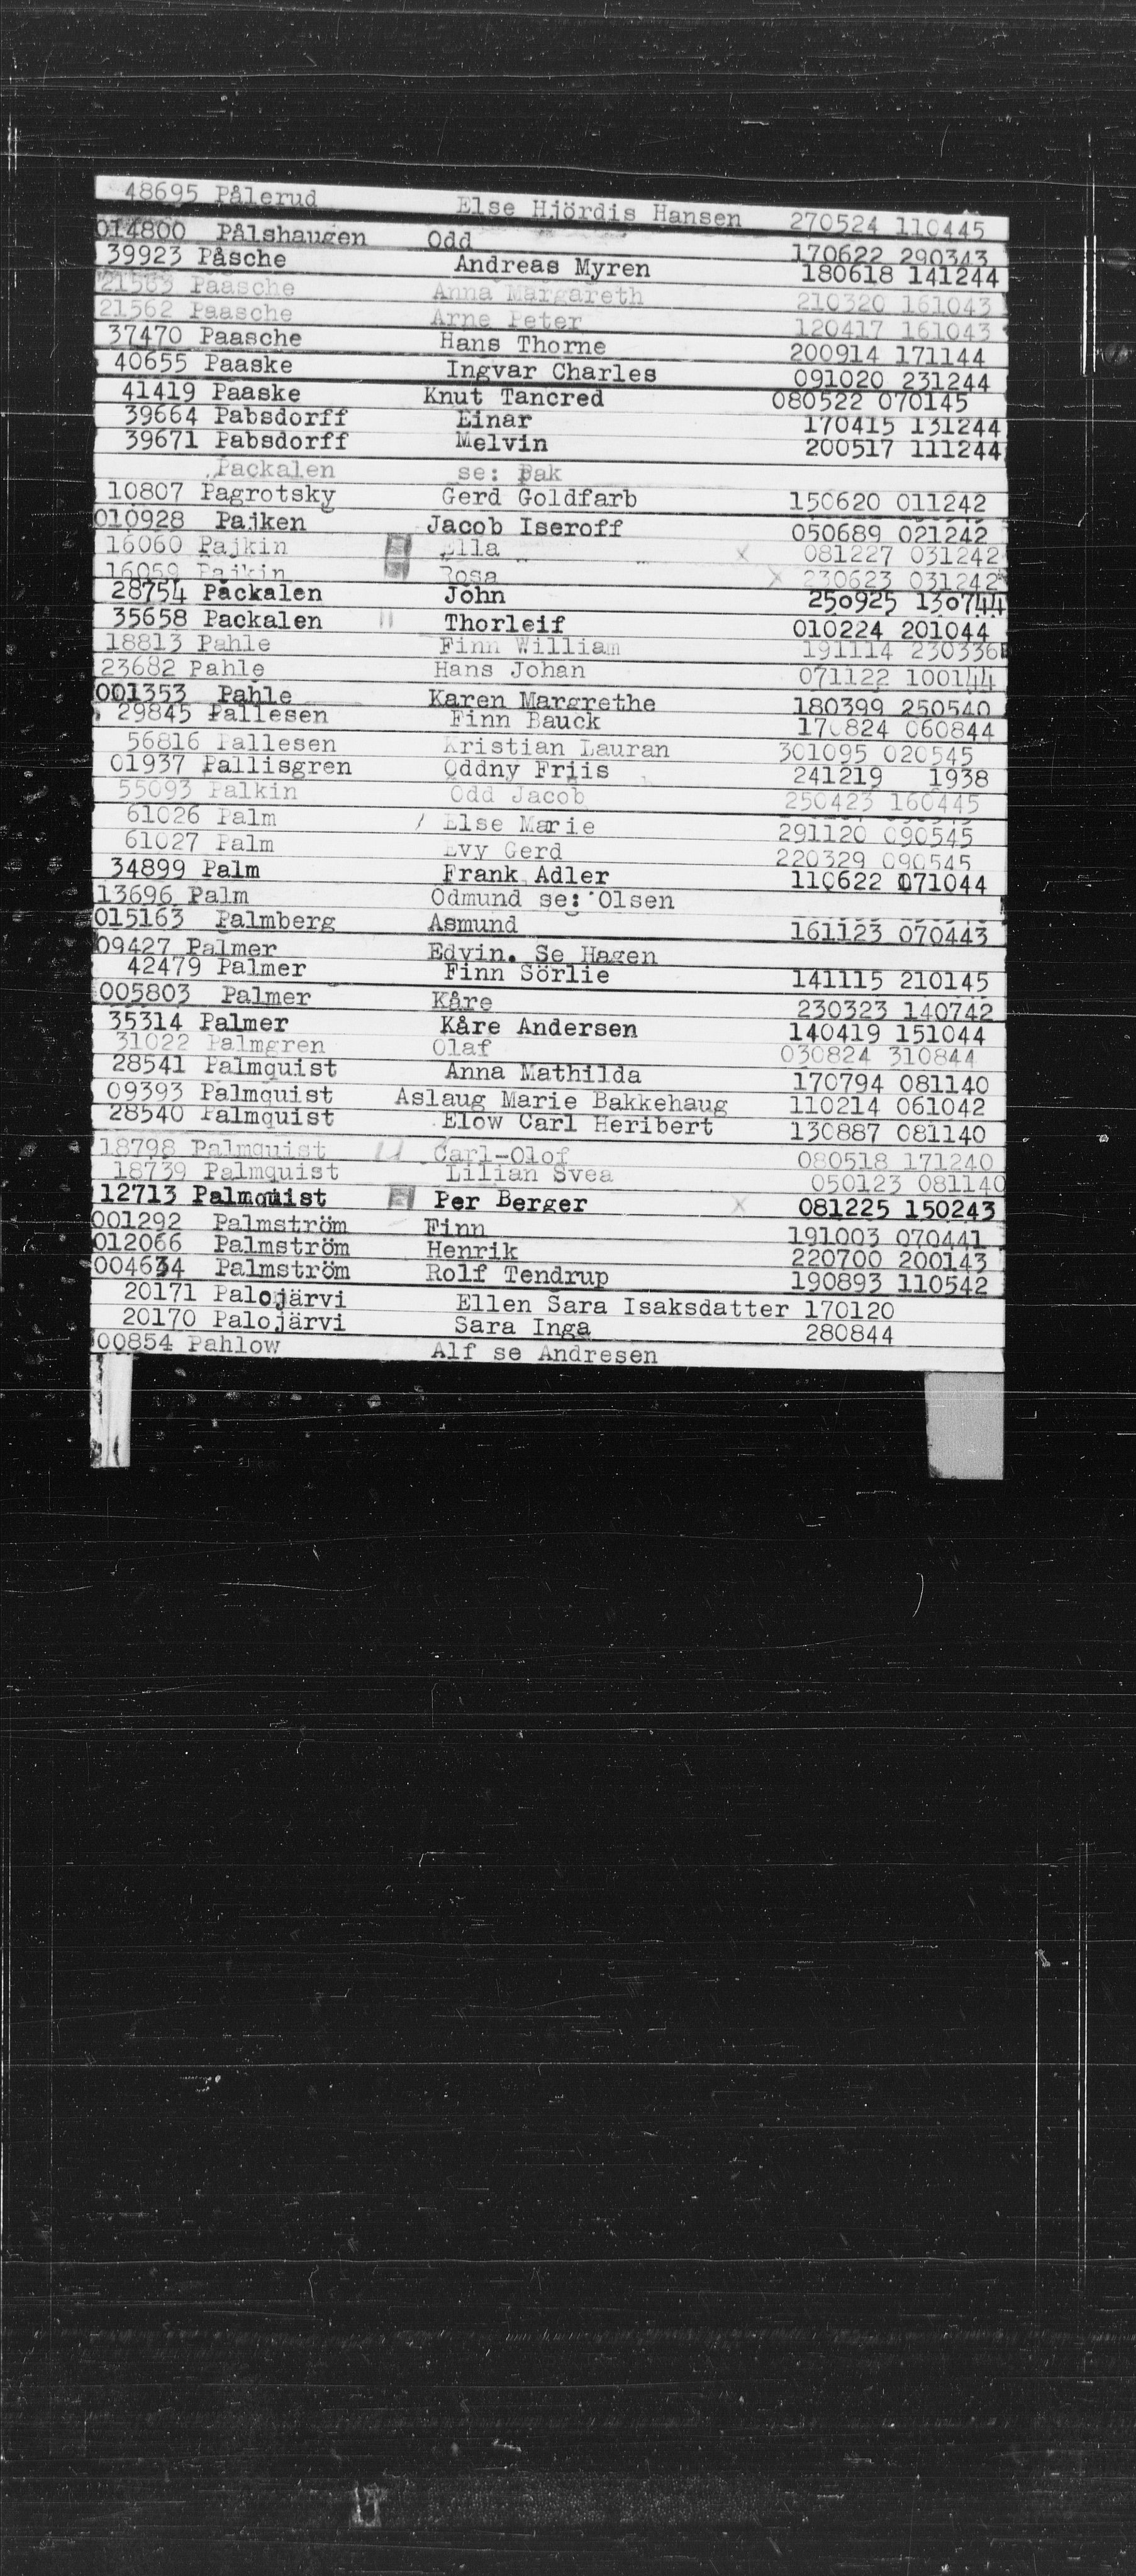 48695 Pålerud Else Hjördis Hansen 270524 110445
014800 Pålshaugen Odd 170622 290343
39923 Påsche Andreas Myren 180618 141244
21563 Paasche Anna Margareth 210320 161043
21562 Paasche Arne Peter 120417 161043
37470 Paasche Hans Thorne 200914 171144
40655 Paaske Ingvar Charles 091020 231244
41419 Paaske Knut Tancred 080522 070145
39664 Pabsdorff Einar 170415 131244
39671 Pabsdorff Melvin 200517 111244
Packalen se: Pak
10807 Pagrotsky Gerd Goldfarb 150620 011242
010928 Pajken Jacob Iseroff 050689 021242
16060 Pajkin Ella x 081227 031242
16059 Pajkin Rosa x 230623 031242
28754 Packalen John 250925 130744
35658 Packalen Thorleif 010224 201044
18813 Pahle Finn William 191114 230336
23682 Pahle Hans Johan 071122 100144
001353 Pahle Karen Margrethe 180399 250540
29845 Pallesen Finn Bauck 170824 060844
56816 Pallesen Kristian Lauran 301095 020545
01937 Pallisgren Oddny Friis 241219 1938
55093 Palkin Odd Jacob 250423 160445
61026 Palm / Else Marie 291120 090545
61027 Palm Evy Gerd 220329 090545
34899 Palm Frank Adler 110622 071044
13696 Palm Odmund se: Olsen
015163 Palmberg Asmund 161123 070443
09427 Palmer Edvin. Se Hagen
42479 Palmer Finn Sörlie 141115 210145
005803 Palmer Kåre 230323 140742
35314 Palmer Kåre Andersen 140419 151044
31022 Palmgren Olaf 030824 310844
28541 Palmquist Anna Mathilda 170794 081140
09393 Palmquist Aslaug Marie Bakkehaug 110214 061042
28540 Palmquist Elow Carl Heribert 130887 081140
18798 Palmquist Carl-Olof 080518 171240
18739 Palmquist Lilian Svea 050123 081140
12713 Palmquist Per Berger x 081225 150243
001292 Palmström Finn 191003 070441
012066 Palmström Henrik 220700 200143
004634 Palmström Rolf Tendrup 190893 110542
20171 Palojärvi Ellen Sara Isaksdatter 170120
20170 Palojärvi Sara Inga 280844
00854 Pahlow Alf se Andresen